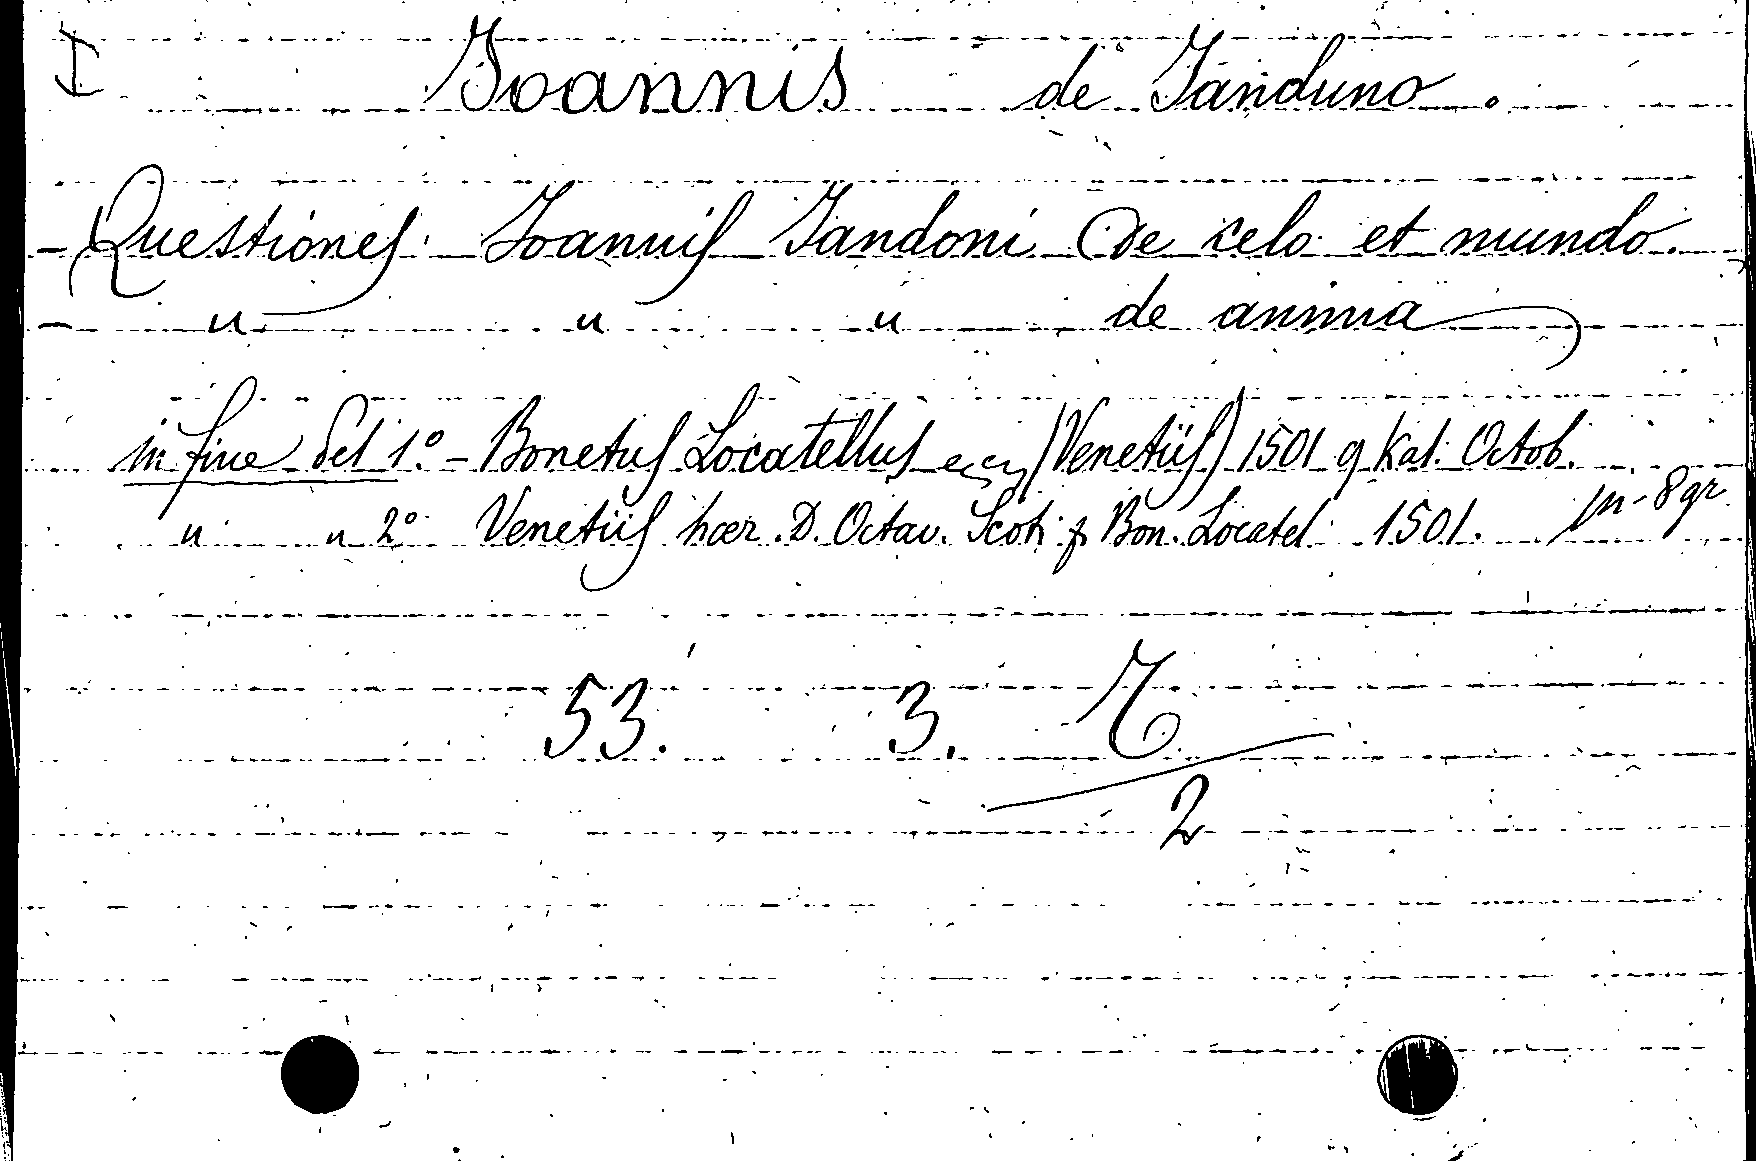 I Joannis de Janduno.
- Questiones Joannis Jandoni De celo et mundo.
- " " " de anima
in fine del 1.º - Bonetus Locatellus (Venetiis) 1501 9 Kal. Octob.
" " 2º Venetiis hær. D. Octav. Scoti Bon. Locatel 1501. in-8 gr
53. 3.
2